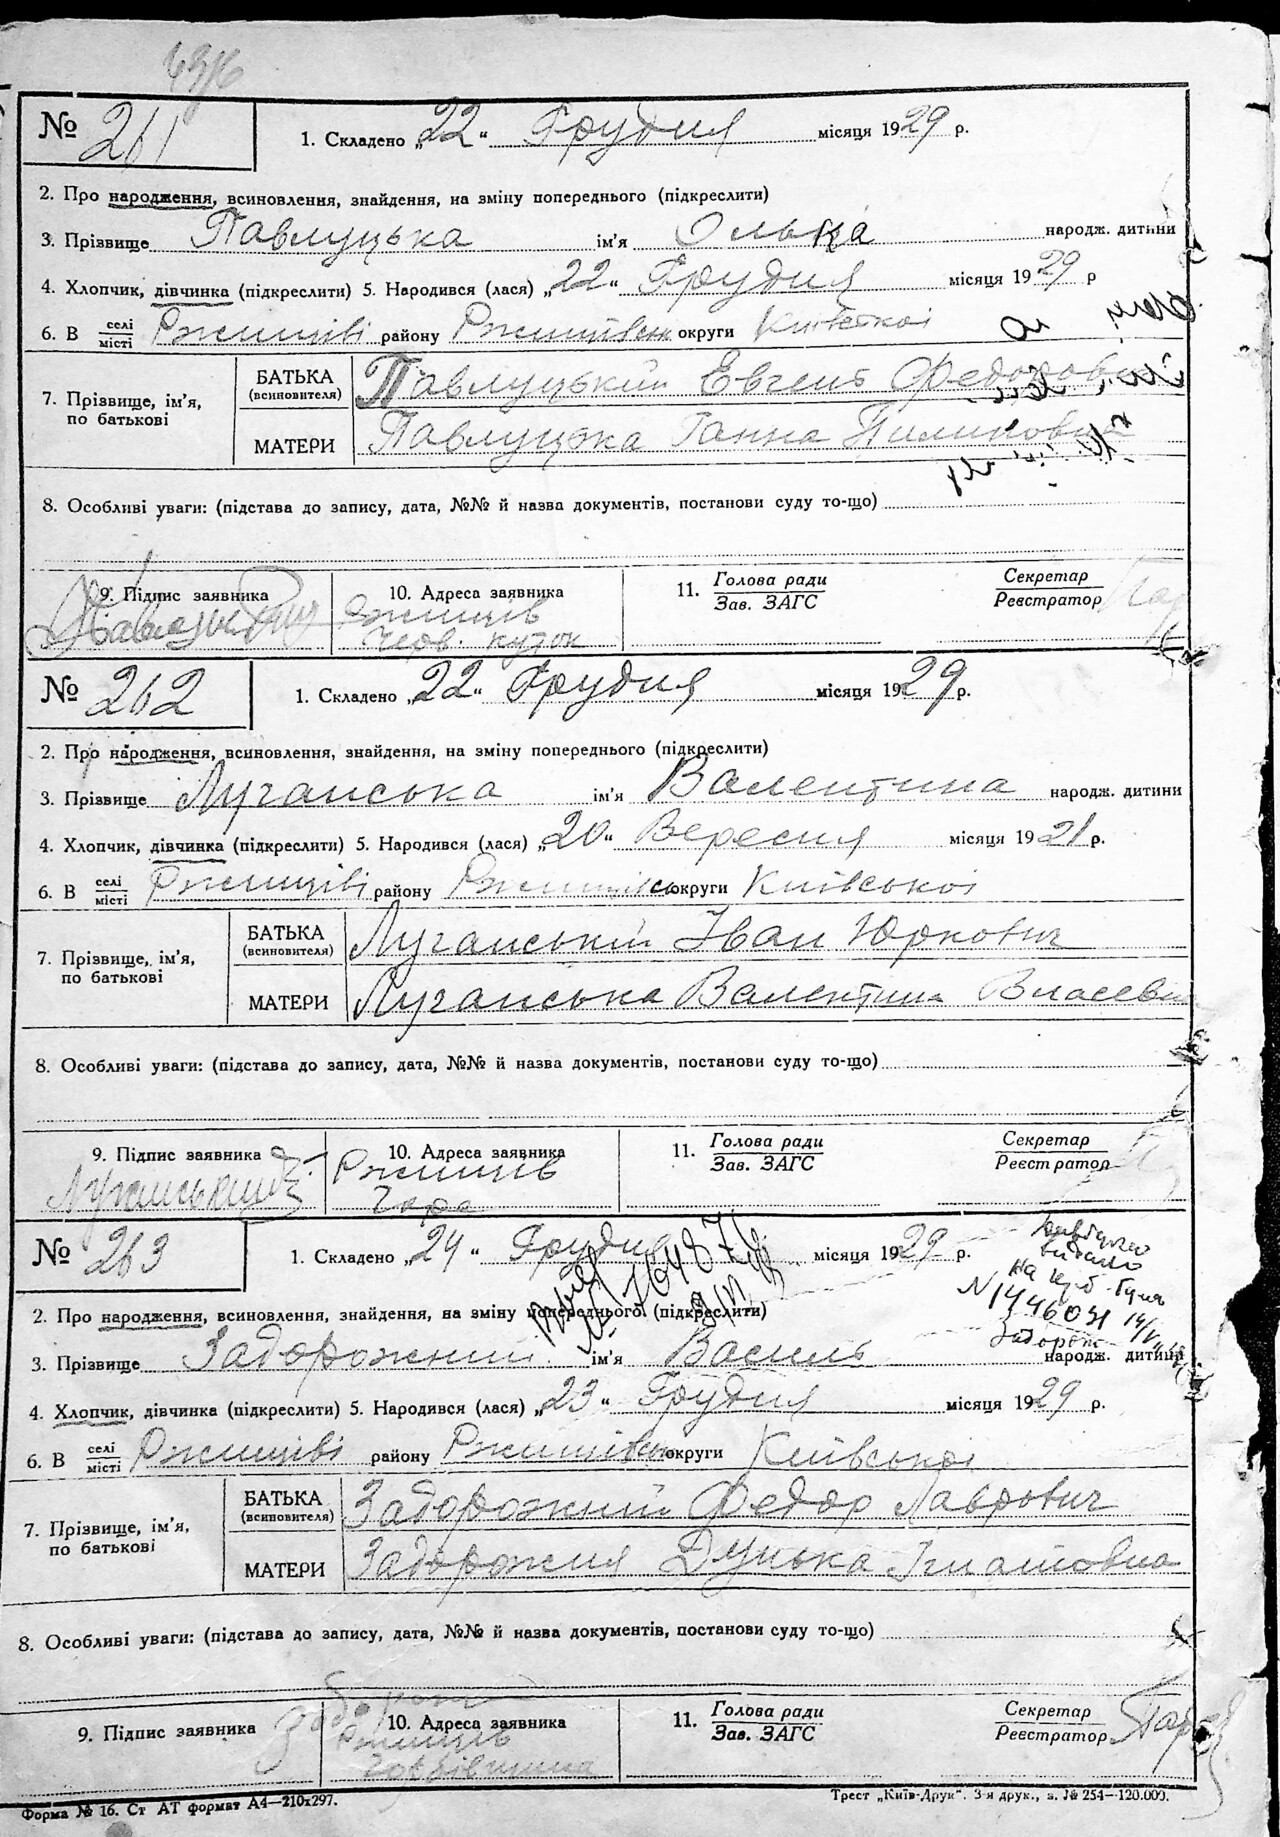 № 261 1. Складено „22“ Грудня місяця 1929 р.
2. Про народження, всиновлення, знайдення, на зміну попереднього (підкреслити)
3. Прізвище Павлуцька ім'я Ольга народж. дитини
4. Хлопчик, дівчинка (підкреслити) 5. Народився (лася) „22“ Грудня місяця 1929 р
6. В селі/місті Ржищіві району Ржищівськ округи Київської
7. Прізвище, ім'я, по батькові
БАТЬКА (всиновителя) Павлуцький Евгент Федорович
МАТЕРИ Павлуцька Ганна Пилиповна
8. Особливі уваги: (підстава до запису, дата, №№ й назва документів, постанови суду то-що)
9. Підпис заявника 10. Адреса заявника 11. Голова ради/Зав. ЗАГС Секретар/Реєстратор
Ржищів
Черв. куток
№ 262 1. Складено „22“ Грудня місяця 1929 р.
2. Про народження, всиновлення, знайдення, на зміну попереднього (підкреслити)
3. Прізвище Луганська ім'я Валентина народж. дитини
4. Хлопчик, дівчинка (підкреслити) 5. Народився (лася) „20“ Вересня місяця 1921 р.
6. В селі/місті Ржищіві району Ржищівськ округи Київської
7. Прізвище, ім'я, по батькові
БАТЬКА (всиновителя) Луганський Іван Юркович
МАТЕРИ Луганська Валентина Власевна
8. Особливі уваги: (підстава до запису, дата, №№ й назва документів, постанови суду то-що)
9. Підпис заявника 10. Адреса заявника 11. Голова ради/Зав. ЗАГС Секретар/Реєстратор
Луганський Ржищів
Гора
№ 263 1. Складено „24“ Грудня місяця 1929 р.
2. Про народження, всиновлення, знайдення, на зміну попереднього (підкреслити)
3. Прізвище Задорожний ім'я Василь народж. дитини
4. Хлопчик, дівчинка (підкреслити) 5. Народився (лася) „23“ Грудня місяця 1929 р.
6. В селі/місті Ржищіві району Ржищівськ округи Київської
7. Прізвище, ім'я, по батькові
БАТЬКА (всиновителя) Задорожний Федор Лаврович
МАТЕРИ Задорожня Дунька Ігнатовна
8. Особливі уваги: (підстава до запису, дата, №№ й назва документів, постанови суду то-що)
9. Підпис заявника 10. Адреса заявника 11. Голова ради/Зав. ЗАГС Секретар/Реєстратор
Ржищів
Форма № 16. Ст АТ формат А4—210х297. Трест „Київ-Друк“. 3-я друк., з. № 254—120.000.